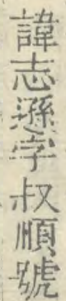 諱志遜字叔順號